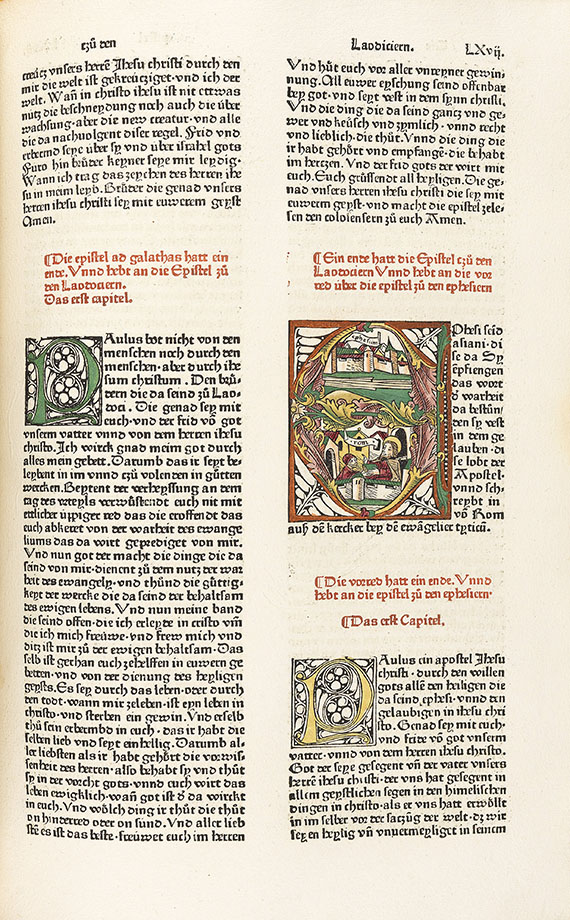 tzů den
Laodiciern.
LXvij.
creütz vnsers herrē Jhesu christi durch den
mir die welt ist gekreütziget·vnd ich der
welt. Wañ in christo ihesu ist nit ettwas
nütz die beschneydung noch auch die über
wachsung·aber die new creatur·vnd alle
die da nachuolgent diser regel. Frid vnd
erbermd seye über sy vnd über israhel gots
Furo hin brüder keyner seye mir leydig·
Wann ich trag das zeychen des herren ihe
su in meim leyb. Brüder die genad vnsers
herren ihesu christi sey mit euwerem geyst
Amen.
¶Die epistel ad galathas hatt ein
ende. Vnnd hebt an die Epistel zů
den Laodociern.
Das erst capitel.
PAulus bot nicht von den
menschen noch durch den
menschen·aber durch ihe
sum christum. Den brü-
dern die da seind zů Lao-
doci. Die genad sey mit
euch·vnd der frid vō got
vnserm vatter vnnd von dem herren ihesu
christo. Ich wirck gnad meim got durch
alles mein gebett. Darumb das ir seyt be-
leybent in im vnnd tzů volenden in gůtten
wercken. Beytent der verheyssung an dem
tag des vrteyls vnd euch nit mit
ettlicher üppiger red das die eroffendt das
euch abkeret von der warheit des ewange
liums das da wirt geprediget von mir.
Vnd nun got der macht die dinge die da
seind von mir·dienent zů dem nutz der war
heit des ewangely·vnd thůnd die gůttig-
keyt der wercke die da seind der behaltsam
des ewigen lebens. Vnd nun meine band
die seind offen·die ich erleyde in cristo vm̄
die ich mich freüwe·vnd frew mich vnd
ditz ist mir zů der ewigen behaltsam·Das
selb ist gethan euch zehelffen in euwern ge
betten·vnd von der dienung des heyligen
geysts. Es sey durch das leben·oder durch
den todt·wann mir zeleben·ist eyn leben in
christo·vnd sterben ein gewin. Vnd erselb
thů sein erbermbd in euch·das ir habt die
selben lieb vnd seyt einhellig. Darumb al-
ler liebsten als ir habt gehört die vorwis-
senheit des herren·also behabt sy vnd thůt
sy in der vorcht gots·vnnd euch wirt das
leben ewigklich·wañ got ist d̕ da wirckt
in euch. Vnd wölch ding ir thůt die thůt
on hinderred oder on sünd. Vnd aller lieb
sten es ist das beste·freüwet euch im herren
Vnd hüt euch vor aller vnreyner gewin-
nung. All euwer eyschung seind offenbar
bey got·vnd seyt vest in dem synn christi.
Vnd die ding die da seind gantz vnd ge-
wer vnd keüsch vnd zymlich·vnnd recht
vnd lieblich·die thůt. Vnnd die ding die
ir habt gehört vnd empfangē·die behabt
im hertzen. Vnd der frid gots der wirt mit
euch. Euch grüssendt all heyligen. Die ge-
nad vnsers herren ihesu christi die sey mit
euwerm geyst·vnd macht die epistel zele-
sen den colosensern zů euch Amen.
¶Ein ende hatt die Epistel tzů den
Laodociern Vnnd hebt an die vor
red über die epistel zů den ephesiern
EPhesi seid
asiani·di
se da sy
epfiengen
das wort
d̕ warheit
da bestůn/
den sy vest
in dem ge
lauben·di
se lobt der
Apostel·
vnnd sch-
reybt in
vō Rom
auß dē kercker bey dē ewāgelier tyticū.
ephesum
rom
¶Die vorred hatt ein ende. Vnnd
hebt an die epistel zů den ephesiern·
¶Das erst Capitel.
PAulus ein apostel Jhesu
christi·durch den willen
gots allē den heiligen die
da seind ephesi·vnnd den
gelaubigen in ihesu chri
sto. Genad sey mit euch·
vnd fride vō got vnserm
vatter·vnnd von dem herren ihesu christo.
Got der seye gesegent vñ der vater vnsers
herrē ihesu christi·der vns hat gesegent in
allem geystlichen segen in den himelischen
dingen in christo·als er vns hatt erwöllt
in im selber vor der satzūg der welt·dz wir
seyen heylig vñ vnuermeyliget in seinem